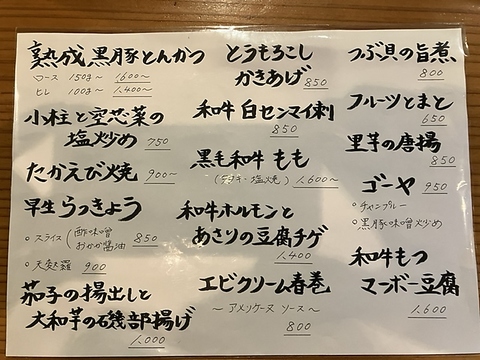 熟成黒豚とんかつ
ロース 150g〜 1600〜
ヒレ 100g〜 1,400〜
小柱と空芯菜の
塩炒め 750
たかえび焼 900〜
早生らっきょう
○スライス(酢味噌
おかか醤油 850
○天麩羅 900
茄子の揚出しと
大和芋の磯部揚げ
1,000
とうもろこし
かきあげ 850
和牛白センマイ刺
850
黒毛和牛もも
・塩焼) 1,600〜
和牛ホルモンと
あさりの豆腐チゲ
1,400
エビクリーム春巻
〜アメリケーヌソース〜
800
つぶ貝の旨煮
800
フルーツとまと
650
里芋の唐揚
850
ゴーヤ 950
○チャンプルー
○黒豚味噌炒め
和牛もつ
マーボー豆腐
1,600